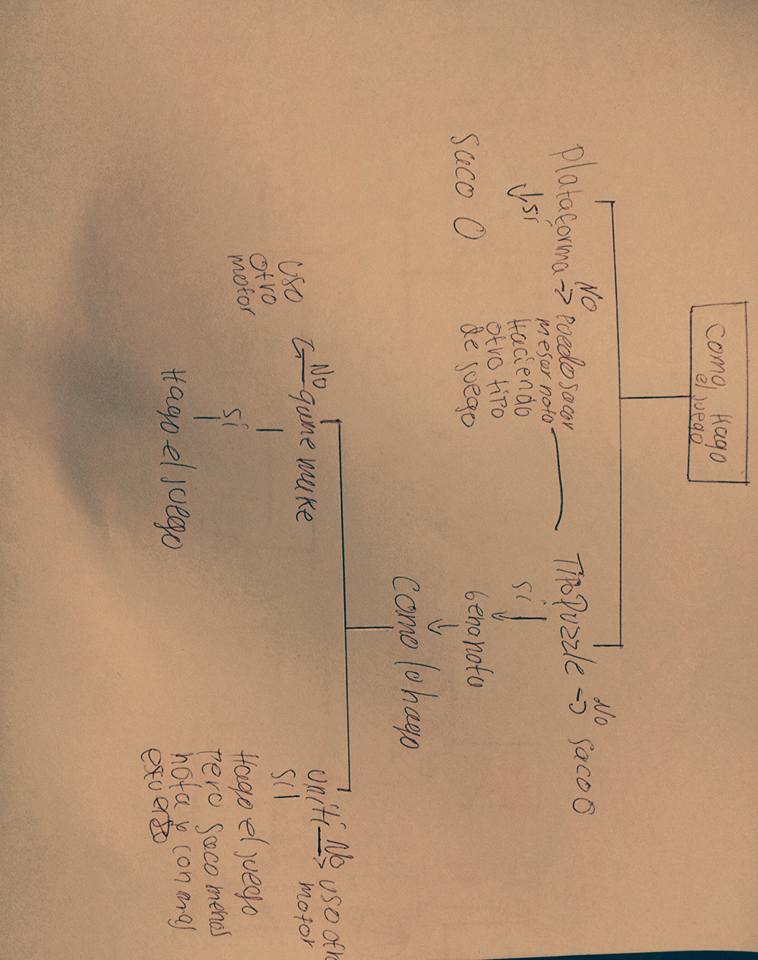 Como Hago
el juego
Plataforma -> No
Puedo sacar
mejor nota
Haciendo
otro tipo
de juego
↓ si
saco 0
Tipo puzzle -> No
saco 0
si
bena nota
Como lo hago
game make
No
Uso
otro
motor
si
Hago el juego
uniti -> No
uso otro
motor
si
Hago el juego
pero saco menos
nota y con mas